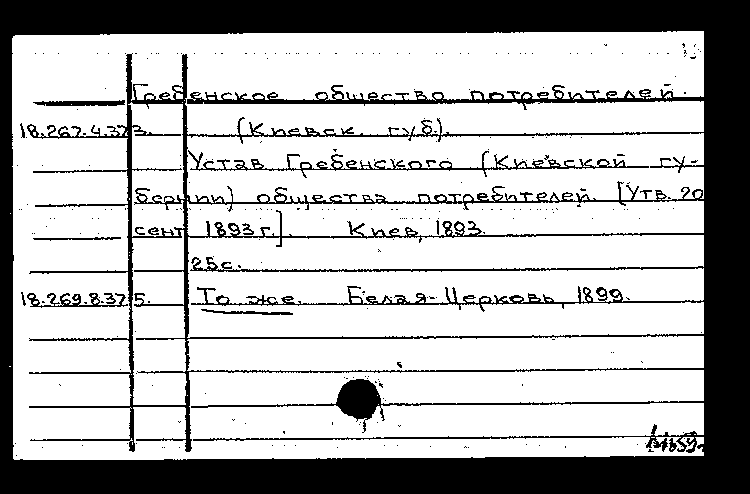 Гребенское общество потребителей.
18.267.4.373. (Киевск. губ.).
Устав Гребенского (Киевской гу-
бернии) общества потребителей. [Утв. 20
сент. 1893 г.]. Киев, 1893.
25с.
18.269.8.375. То же. Белая-Церковь, 1899.